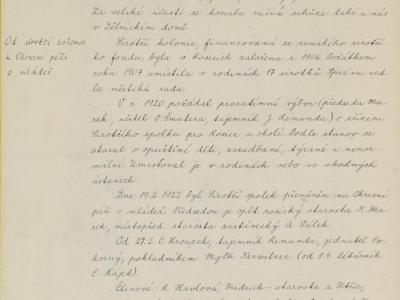 Za veliké účasti se konala ručná schůze také u nás
v Dělnickém domě.
Od sirotčí kolonie
k Okresní péči
o mládež
Sirotčí kolonie, financovaná ze zemského sirotčí-
ho fondu, byla v Rosicích založena r. 1906. Počátkem
roku 1907 umístila v rodinách 17 sirotků. Správu ved-
la městská rada.
V r. 1920 požádal prozatimní výbor (předseda Ma-
rek, učitel O. Smatera, tajemník J. Remunda) o zřízení
Sirotčího spolku pro Rosice a okolí. Podle stanov se
staral o opuštěné děti, zanedbané, týrané a nenor-
mální. Umisťoval je v rodinách nebo ve vhodných
ústavech.
Dne 19.2. 1922 byl Sirotčí spolek přeměněn na Okresní
péči o mládež. Předsedou je opět rosický starosta K. Ma-
rek, místopřed. starosta zastávecký A. Válek.
Od 27.2. Č. Krouzek, tajemník Remunda, jednatel Po-
korný, pokladníkem MgPh (od 1.9. lékárník
Č. Hájek).
Členové: R. Havlová, Fridrich - starosta z